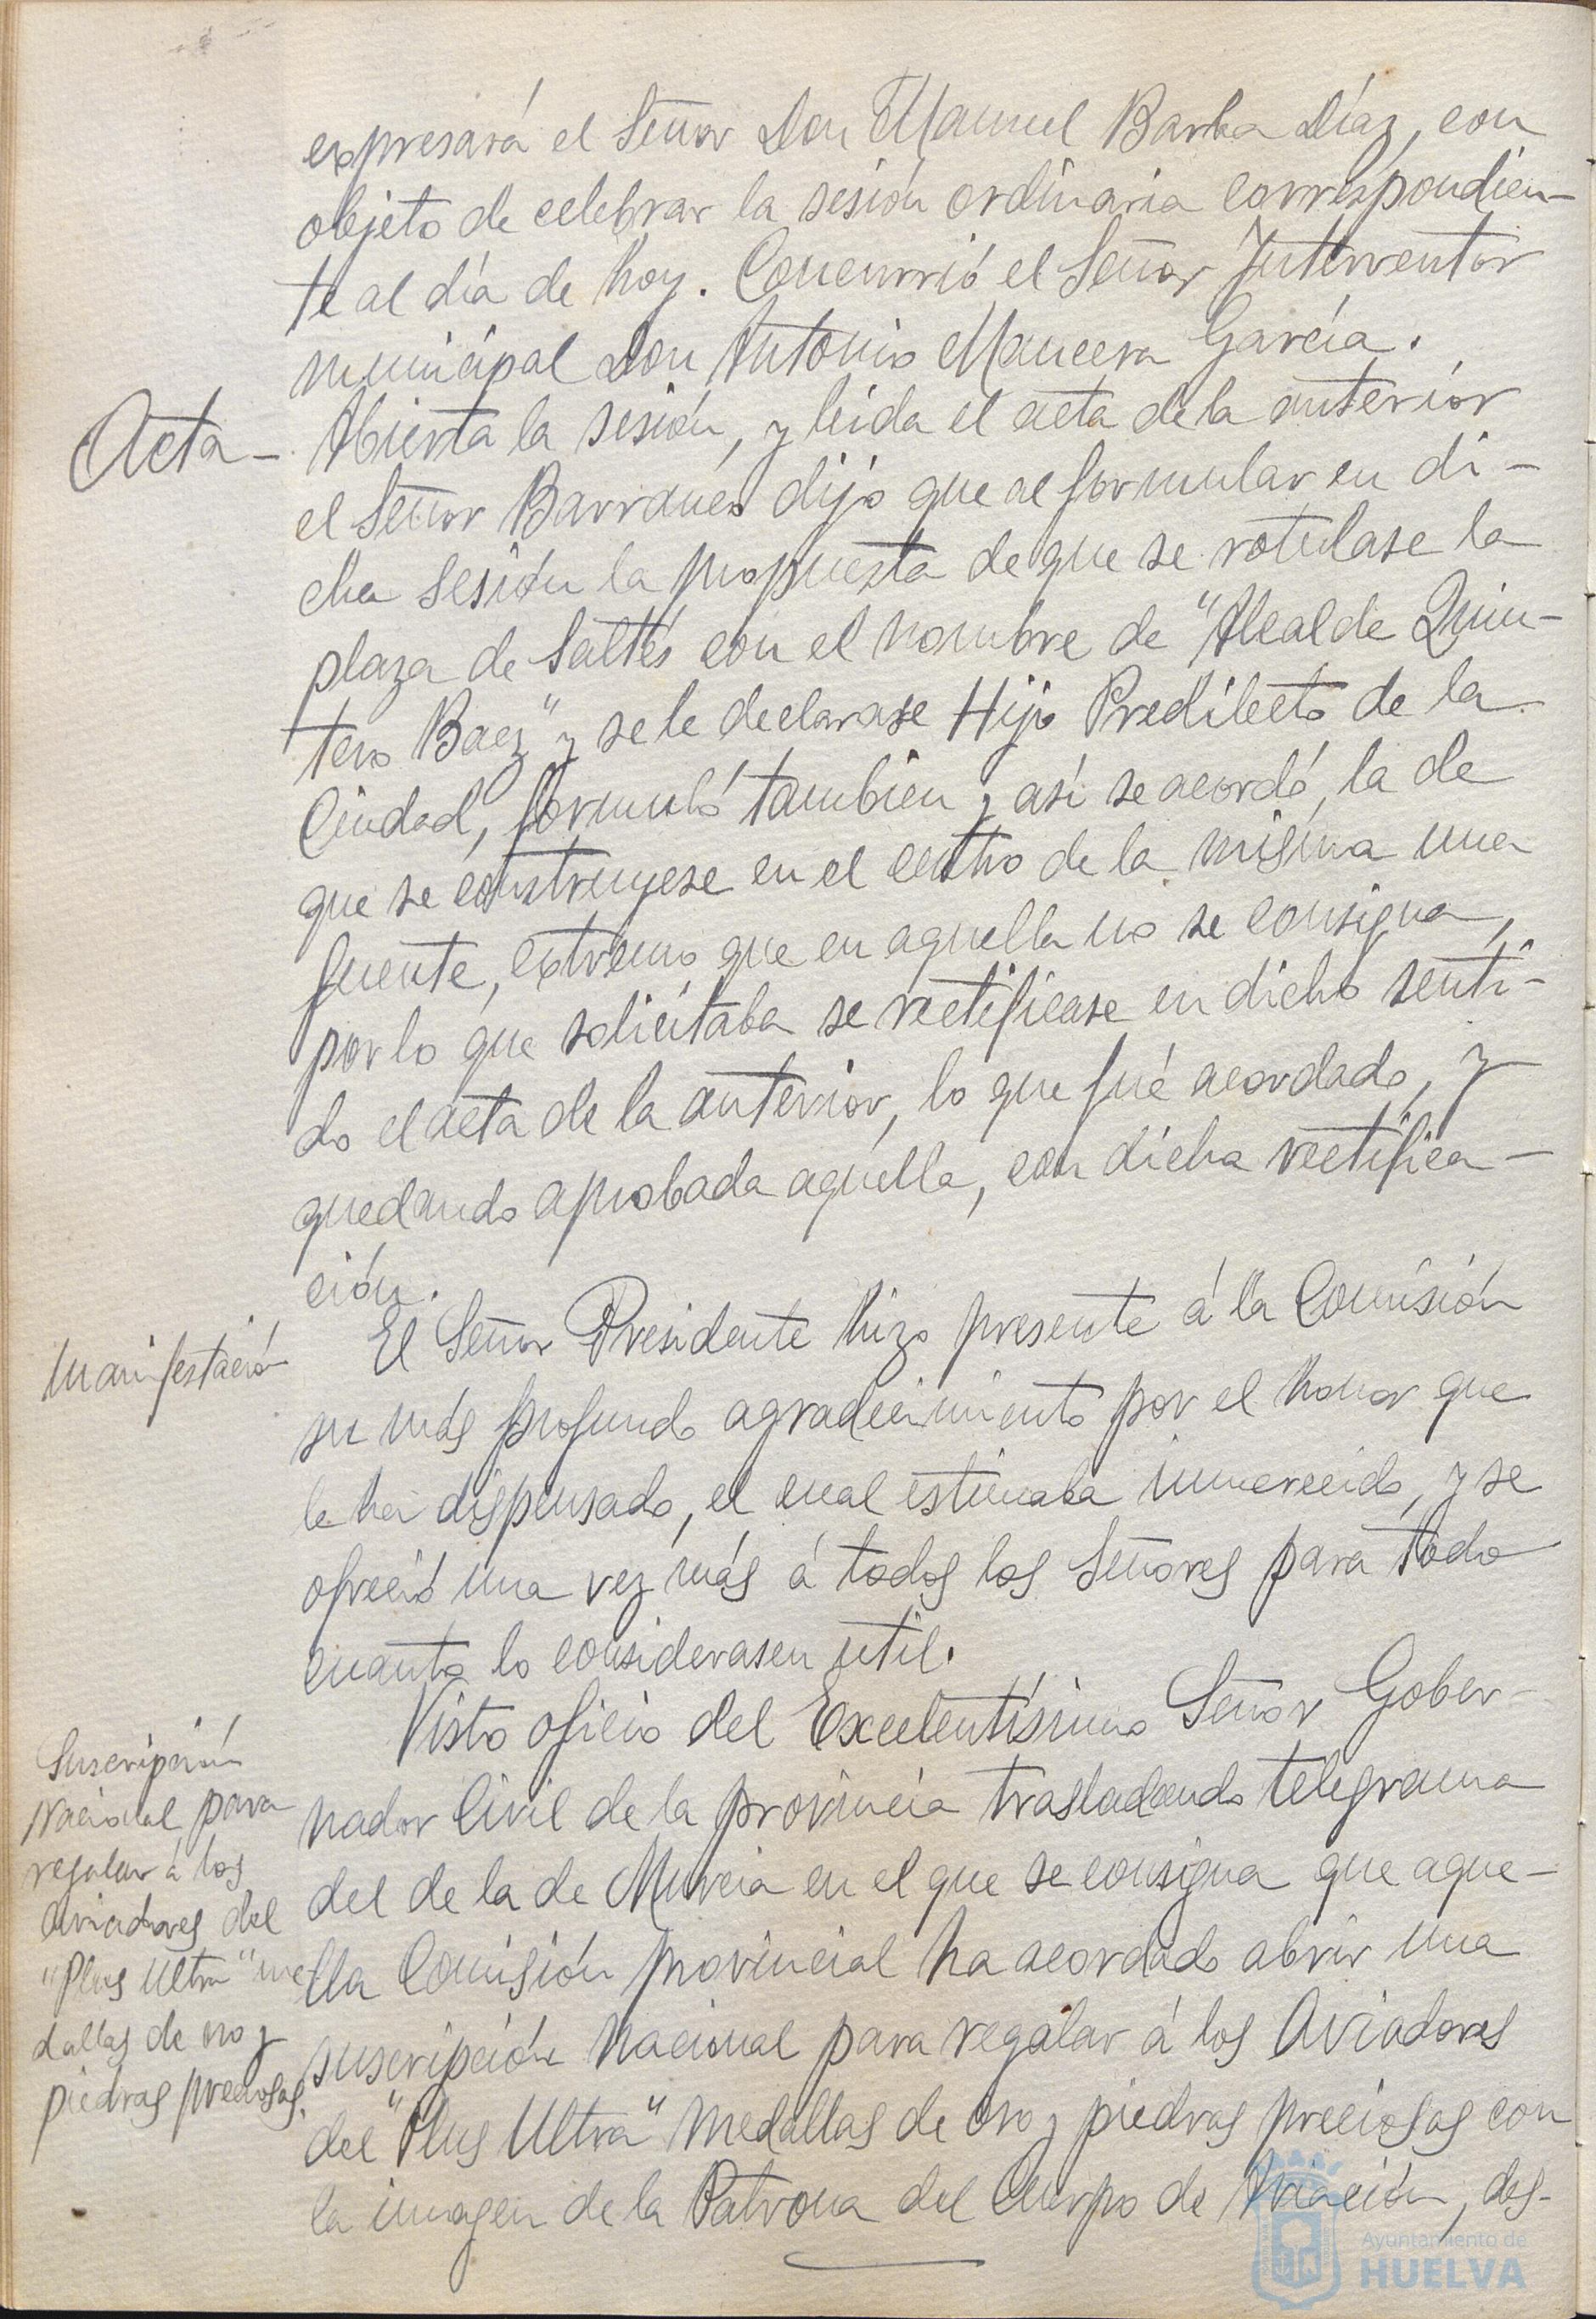 expresará el Señor Don Manuel Barba Díaz, con
objeto de celebrar la sesión ordinaria correspondien-
te al día de hoy. Concurrió el Señor Interventor
municipal Don Antonio Mancera García.
Acta - Abierta la sesión, y leida el acta de la anterior
el Señor Barranco dijo que al formular en di-
cha sesión la propuesta de que se rotulase la
plaza de Saltés con el nombre de "Alcalde Quin-
tero Baez" y se le declarase Hijo Predilecto de la
Ciudad, formuló tambien y así se acordó, la de
que se construyese en el centro de la misma una
fuente, extremo que en aquella no se consigna,
por lo que solicitaba se rectificase en dicho senti-
do el acta de la anterior, lo que fué acordado, y
quedando aprobada aquella, con dicha rectifica-
ción.
Manifestación
El Señor Presidente hizo presente á la Comisión
su más profundo agradecimiento por el honor que
le ha dispensado, el cual estimaba inmerecido, y se
ofreció una vez más á todos los Señores para todo
cuanto lo considerasen util.
Suscripción
Nacional para
regalar á los
Aviadores del
"Plus Ultra" me-
dallas de oro y
piedras preciosas.
Visto oficio del Excelentísimo Señor Gober-
nador Civil de la provincia trasladando telegrama
del de la de Murcia en el que se consigna que aque-
lla Comisión provincial ha acordado abrir una
suscripción Nacional para regalar á los Aviadores
del "Plus Ultra" Medallas de Oro y piedras preciosas con
la imagen de la Patrona del Cuerpo de Aviación, dos-
Ayuntamiento de
HUELVA